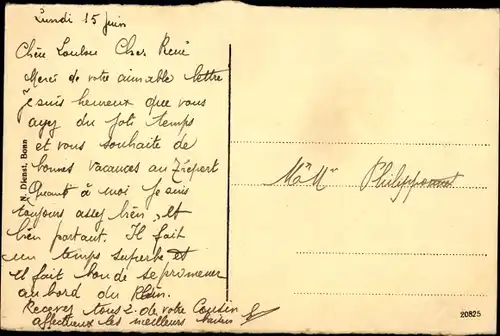 Lundi 15 Juin
Chère Loulou Cher René
Merci de votre aimable lettre
je suis heureux que vous
ayez du joli temps
et vous souhaite de
bonnes vacances au Tréport
Quant à moi je suis
toujours assez bien et
bien portant. Il fait
un temps superbe et
il fait bon de se promener
au bord du Rhin.
Recevez tous 2 de votre Cousin
affectueux les meilleurs baisers
N. Dienst, Bonn
Mr Mme Philipp
20825